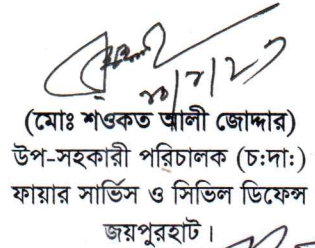 (মোঃ শওকত আলী জোদ্দার)
উপ-সহকারী পরিচালক (চ:দা:)
ফায়ার সার্ভিস ও সিভিল ডিফেন্স
জয়পুরহাট।